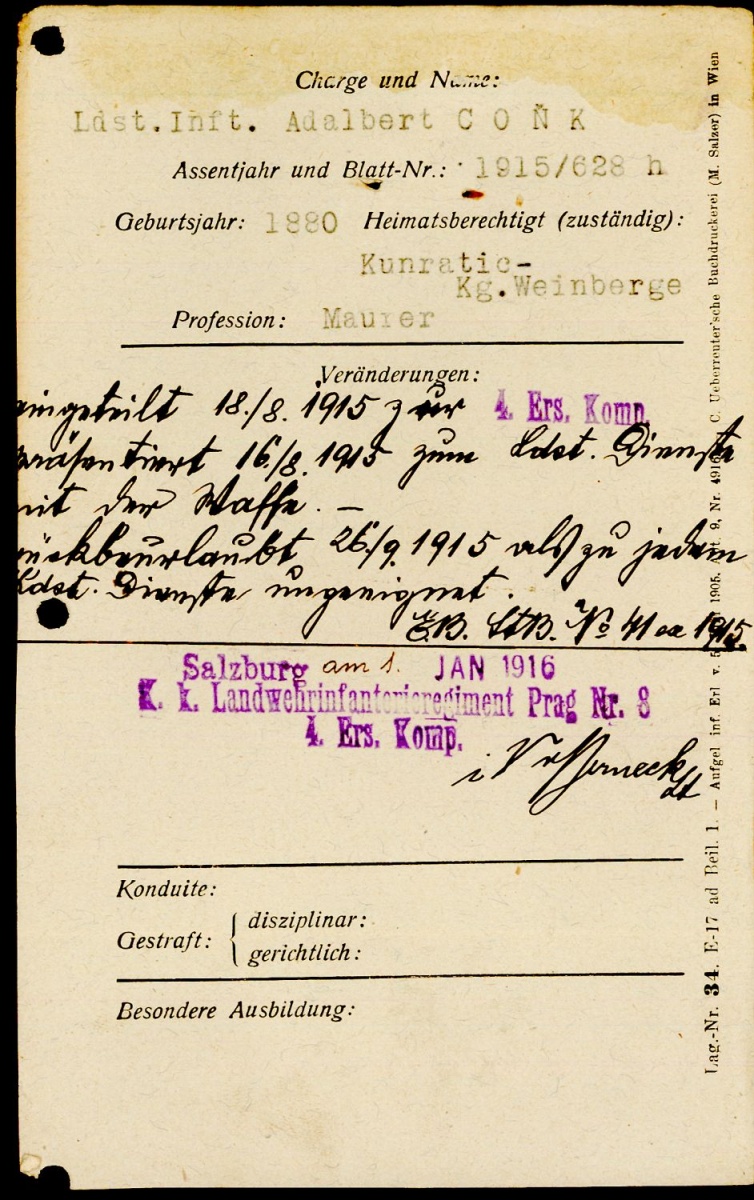 Charge und Name:
Ldst.Inft. Adalbert C O Ň K
Assentjahr und Blatt-Nr.: 1915/628 h
Geburtsjahr: 1880 Heimatsberechtigt (zuständig):
Kunratic-
Kg.Weinberge
Profession: Maurer
Veränderungen:
eingeteilt 18./8. 1915 zur 4. Ers. Komp.
präsentiert 16./8. 1915 zum Ldst. Dienste
mit der Waffe. —
rückbeurlaubt 26./9. 1915 als zu jedem
Ldst. Dienste ungeeignet.
StB. No 41 1915.
Salzburg am 1. JAN 1916
K. k. Landwehrinfanterieregiment Prag Nr. 8
4. Ers. Komp.
Konduite:
Gestraft: { disziplinar:
gerichtlich:
Besondere Ausbildung:
Lag.-Nr. 34. E-17 ad Beil. 1. — Aufgel. inf. Erl. v. 1905, Abt. 9, Nr. C. Ueberreuter'sche Buchdruckerei (M. Salzer) in Wien